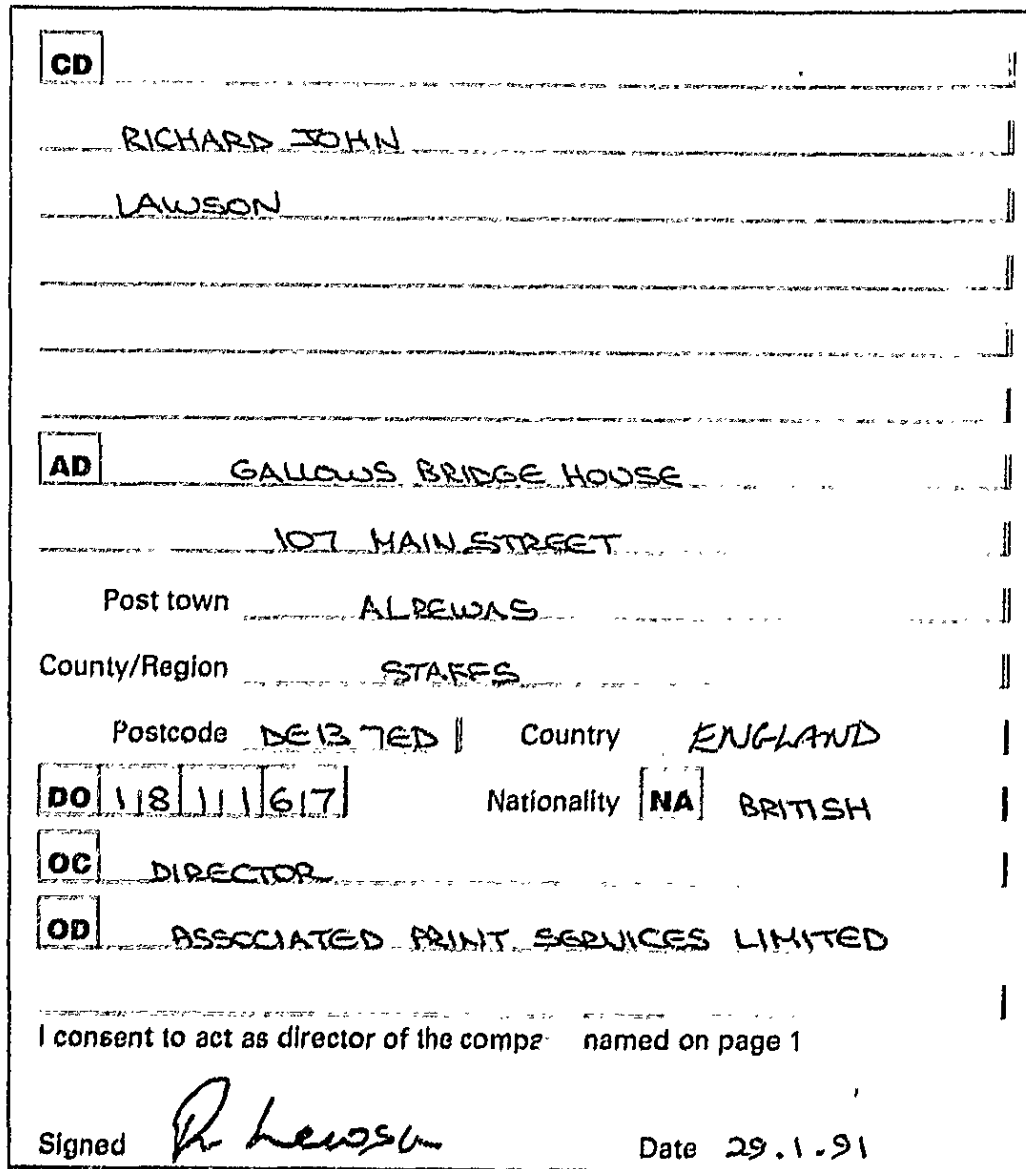 CD
RICHARD JOHN
LAWSON
AD GALLOWS BRIDGE HOUSE
107 MAIN STREET
Post town ALREWAS
County/Region STAFFS
Postcode DE13 7ED Country ENGLAND
DO 18 11 67 Nationality NA BRITISH
OC DIRECTOR
OD ASSOCIATED PRINT SERVICES LIMITED
I consent to act as director of the compa named on page 1
Signed R Lawson Date 29.1.91